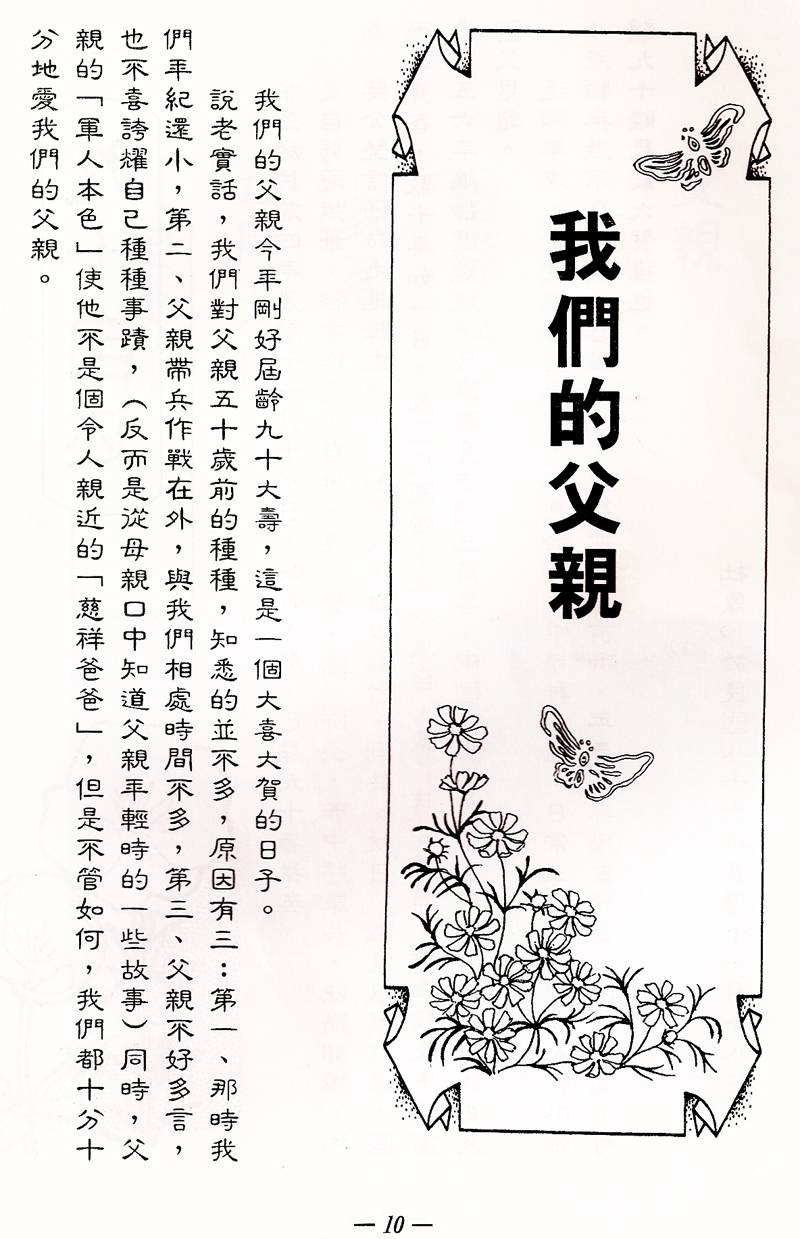 我們的父親
我們的父親今年剛好屆齡九十大壽，這是一個大喜大賀的日子。
說老實話，我們對父親五十歲前的種種，知悉的並不多，原因有三：第一、那時我
們年紀還小，第二、父親帶兵作戰在外，與我們相處時間不多，第三、父親不好多言，
也不喜誇耀自己種種事蹟，（反而是從母親口中知道父親年輕時的一些故事）同時，父
親的「軍人本色」使他不是個令人親近的「慈祥爸爸」，但是不管如何，我們都十分十
分地愛我們的父親。
— 10 —